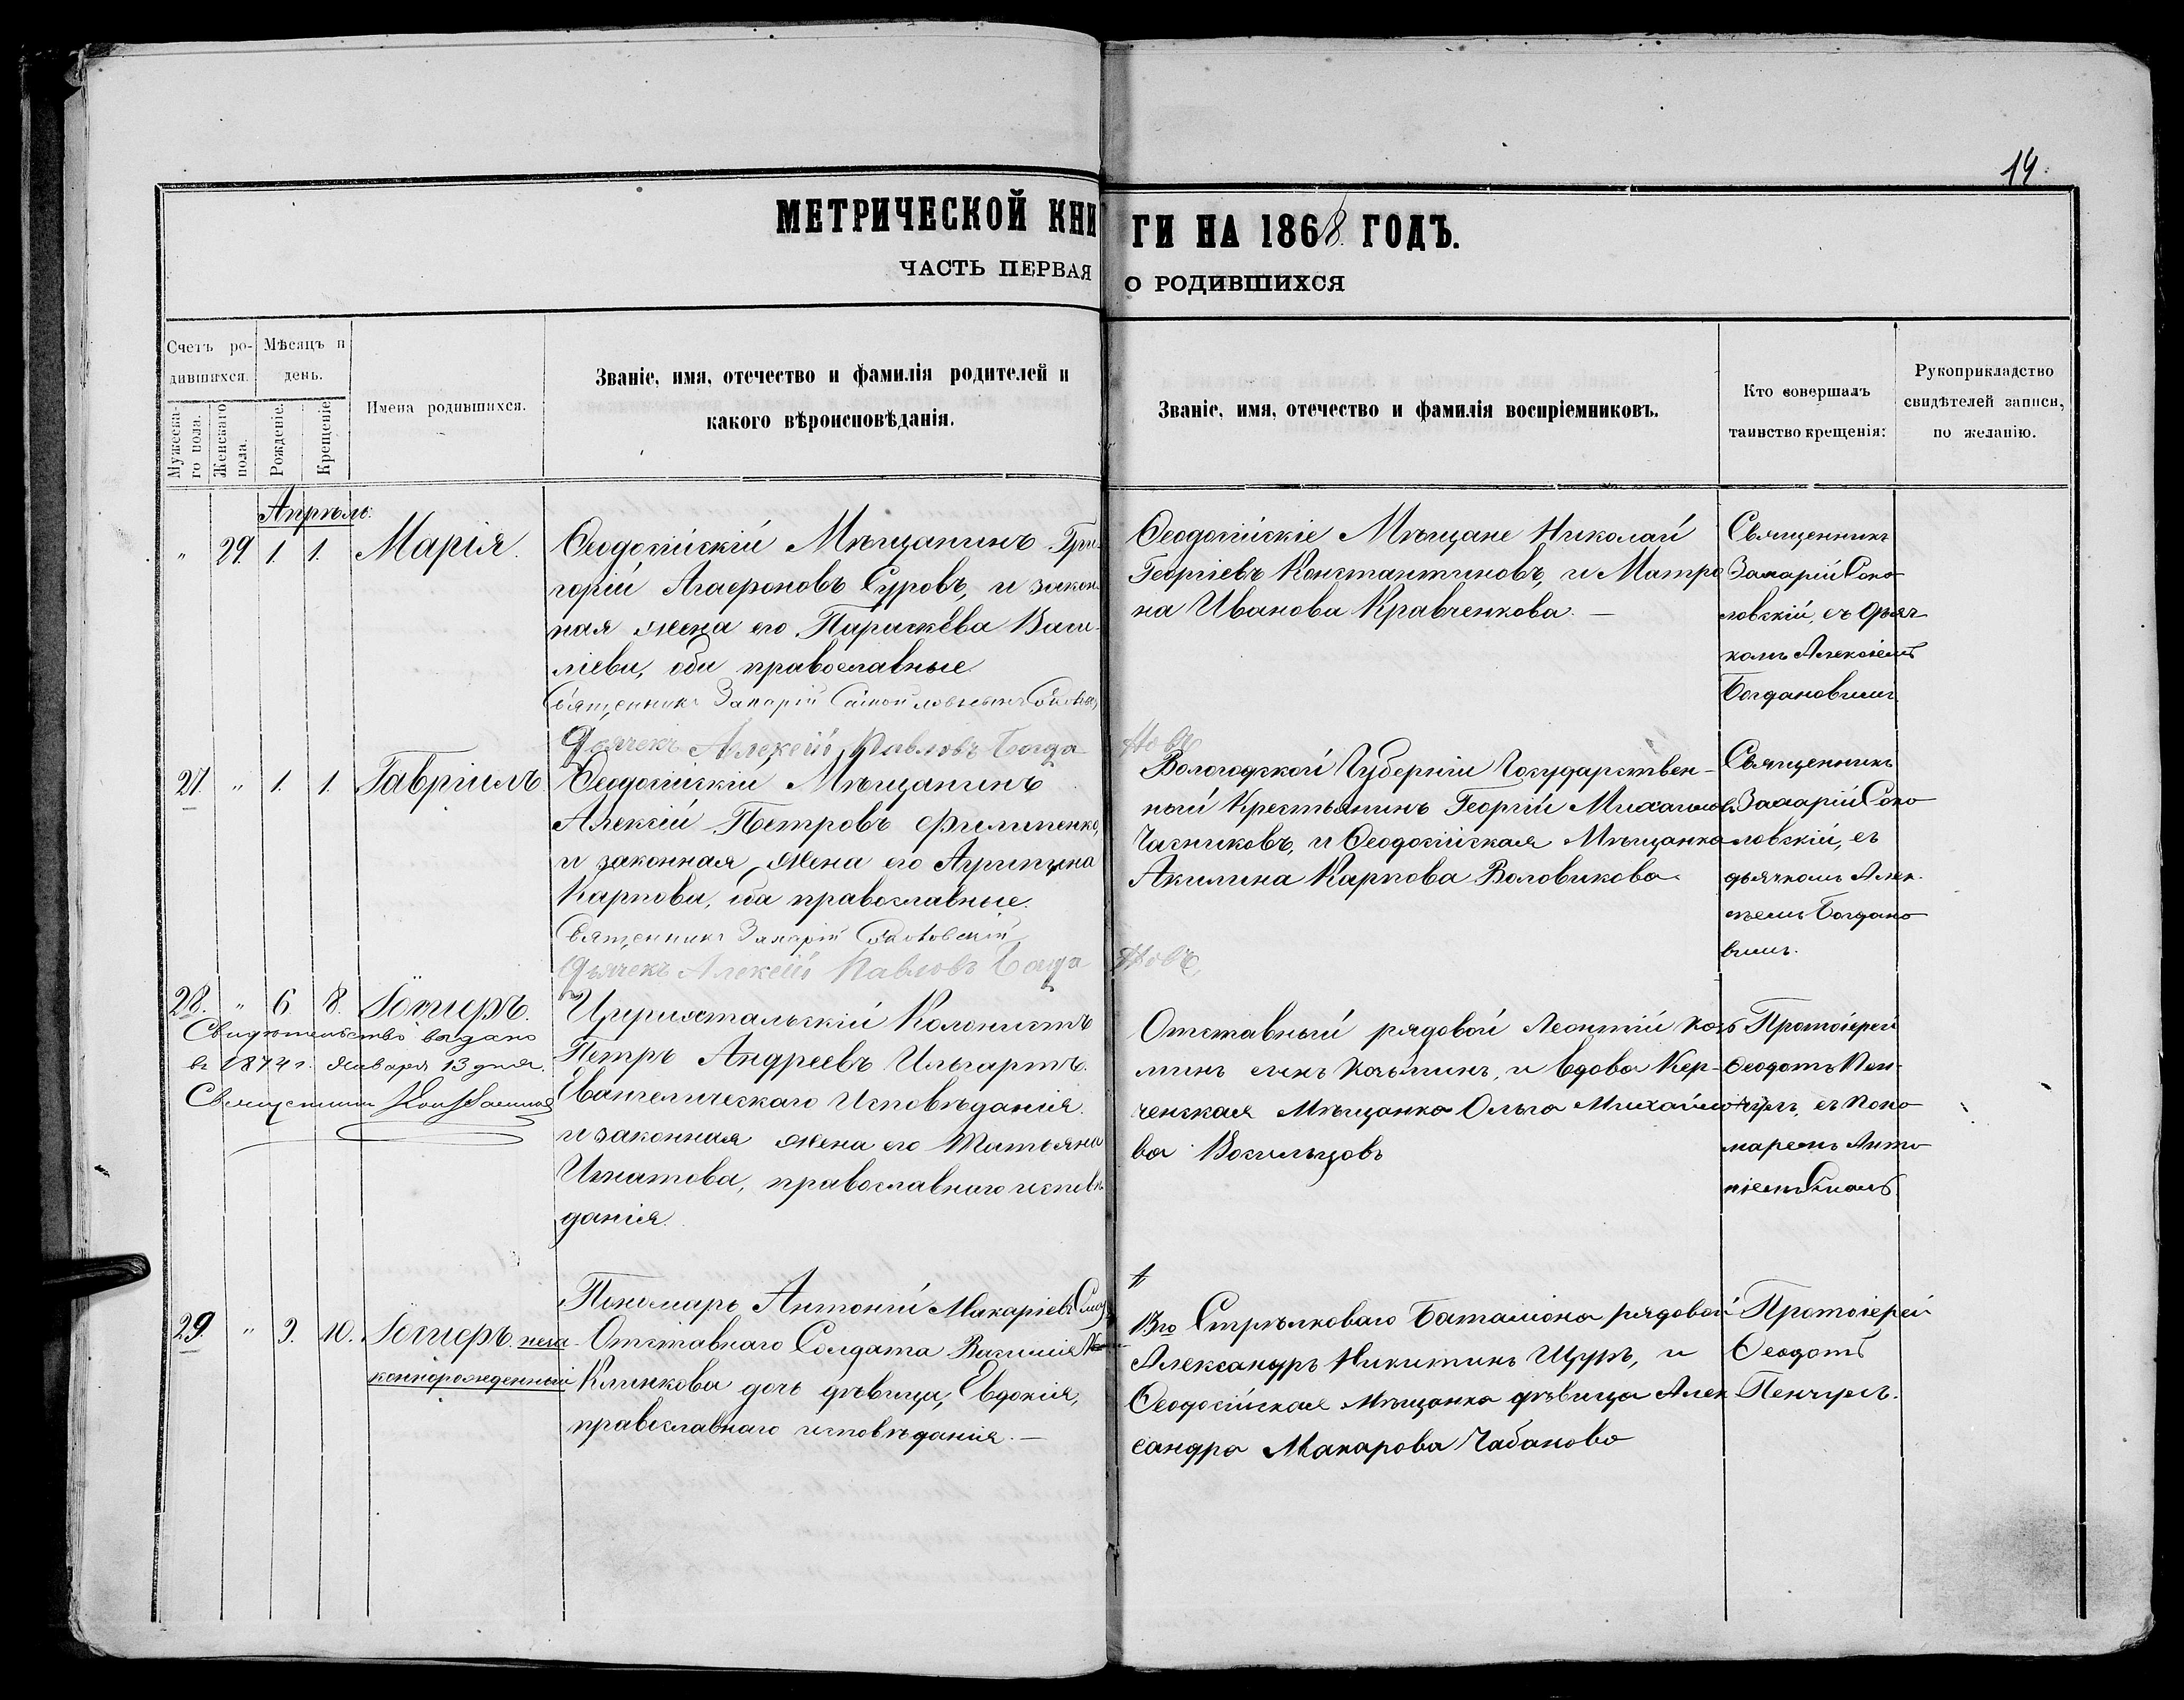 14.
МЕТРИЧЕСКОЙ КНИГИ НА 1868 ГОДЪ.
ЧАСТЬ ПЕРВАЯ О РОДИВШИХСЯ
Счетъ ро-
дившихся.
Мужеска-
го пола.
Женскаго
пола.
Мѣсяцъ и
день.
Рожденіе.
Крещеніе.
Имена родившихся.
Званіе, имя, отечество и фамилія родителей и
какого вѣроисповѣданія.
Званіе, имя, отечество и фамилія воспріемниковъ.
Кто совершалъ
таинство крещенія:
Рукоприкладство
свидѣтелей записи,
по желанію.
Апрѣль.
" 29. 1. 1. Марія.
Ѳеодосійскій Мѣщанинъ Гри-
горій Агаѳоновъ Суровъ, и закон-
ная жена его Параскева Васи-
ліева, оба православные
Священникъ Захарій
Дьячекъ Алексѣй Павловъ Богда
новъ
Ѳеодосійскіе Мѣщане Николай
Георгіевъ Константиновъ, и Матро
на Иванова Кравченкова. —
Священникъ
Захарій Соко
ловскій, съ дьяч
комъ Алексіемъ
Богдановымъ
27. " 1. 1. Гавріилъ
Ѳеодосійскій Мѣщанинъ
Алексій Петровъ Филипенко,
и законная жена его Агрипина
Карпова, оба православные.
Священникъ Захарій Соколовскій
Дьячекъ Алексѣй Павловъ Богда
новъ
Вологодской Губерніи Государствен-
ный Крестьянинъ Георгій Михаиловъ
Часниковъ, и Ѳеодосійская Мѣщанка
Акилина Карпова Воловикова
Священникъ
Захарій Соко
ловскій, съ
дьячкомъ Алек
сѣемъ Богдано
вымъ.
28. " 6. 8. Іосифъ.
Свидѣтельство выдано
въ 1874 г. Января 13 дня.
Священникъ
Цирихтальскій Колонистъ
Петръ Андреевъ Ильгартъ.
Евангелическаго Исповѣданія.
и законная жена его Татьяна
Игнатова, православнаго исповѣ
данія.
Пономарь Антоній Макаріевъ
Отставный рядовой Леонтій Козь
минъ сынъ Козьминъ, и вдова Кер-
ченская Мѣщанка Ольга Михайло
ва
Протоіерей
Ѳеодотъ Пен-
чулъ, съ поно
маремъ Анто
ніемъ
29. " 9. 10. Іосифъ. неза
коннорожденный
Отставнаго Солдата Василія
Климкова дочь дѣвица, Евдокія,
православнаго исповѣданія. —
13го Стрѣлковаго Баталіона рядовой
Александръ Никитинъ Щуръ, и
Ѳеодосійская Мѣщанка дѣвица Алек
сандра Макарова Чабанова
Протоіерей
Ѳеодотъ
Пенчулъ.